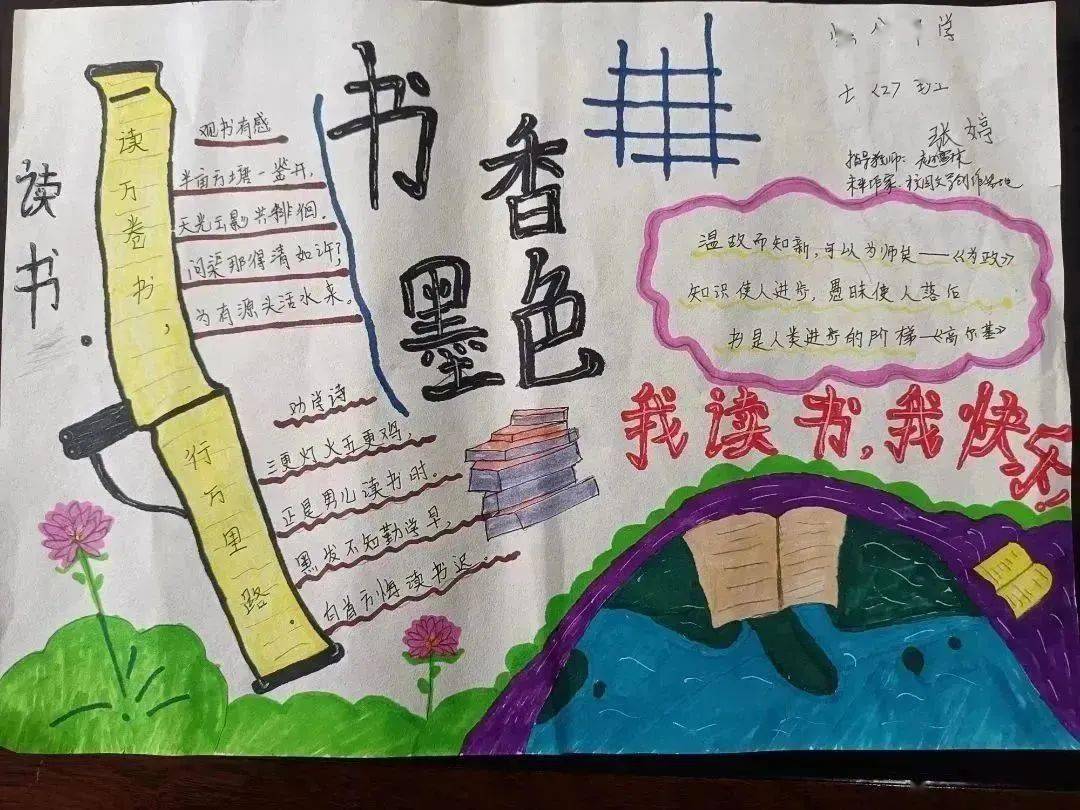 读书.
读万卷书,
行万里路.
观书有感
半亩方塘一鉴开,
天光云影共徘徊.
问渠那得清如许?
为有源头活水来.
劝学诗
三更灯火五更鸡,
正是男儿读书时.
黑发不知勤学早,
白首方悔读书迟.
书香
墨色
七 (2) 班
张婷
指导教师:
温故而知新,可以为师矣——《为政》
知识使人进步,愚昧使人落后
书是人类进步的阶梯—《高尔基》
我读书,我快乐!